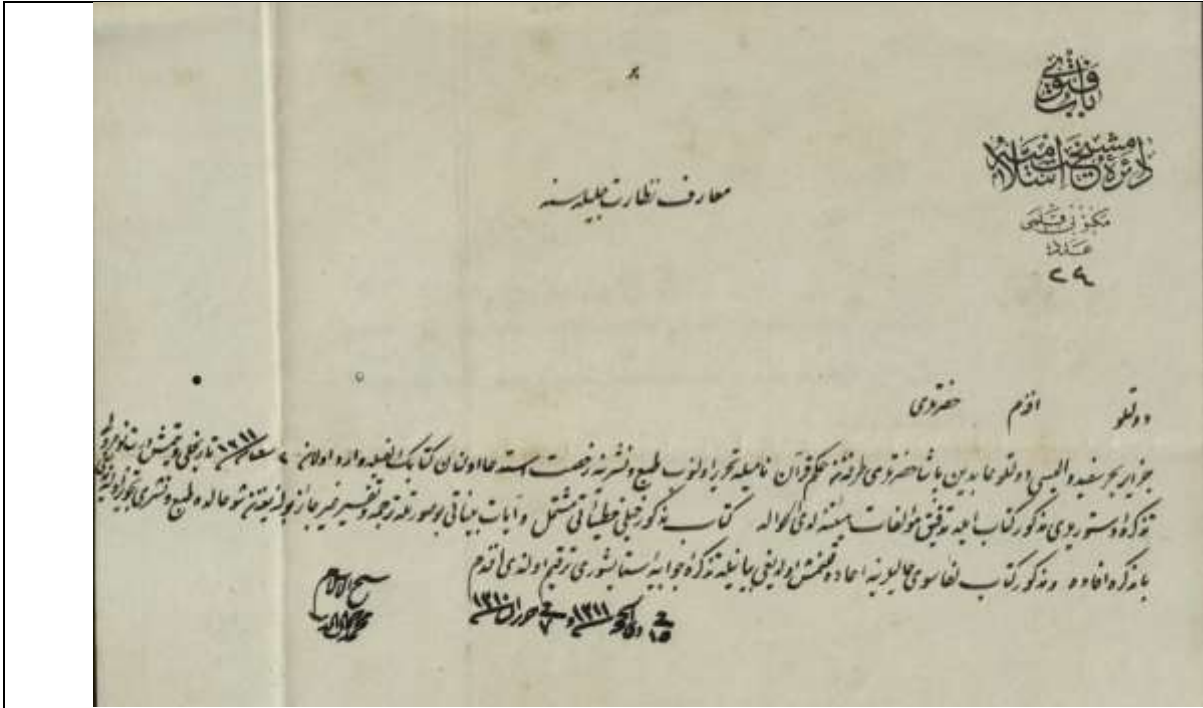 باب فتوى
دائرهٔ مشيخت اسلاميه
مكتوبى قلمى
عدد
٢٤
معارف نظارت جليله سنه
دولتلو افندم حضرتلرى
جزاير بحر سفيد واليسى دولتلو عابدين پاشا حضرتلرى طرفندن حكم قرآن ناميله تحرير اولنوب طبع ونشرينه رخصت استدعا اولنان كتابك لفيله وارد اولان ١٣١١ تاريخلى
تذكرهٔ دستوريلرى مذكور كتاب ايله تدقيق مؤلفات هيئتنه لدى الحواله كتاب مذكور خيلى خطيئاتى مشتمل وآيات بيناتى بو صورتله ترجمه وتفسير غير جائز بولنديغندن شو حالده طبع ونشرى تجويز
با تذكره افاده ومذكور كتاب لفا سوى عاليلرينه اعاده قلنمش اولديغى بيانيله تذكرهٔ جوابيهٔ ثناورى ترقيم اولندى افندم
١٣١١ و حزيران ١٣١٠
شيخ الاسلام
محمد جمال الدين